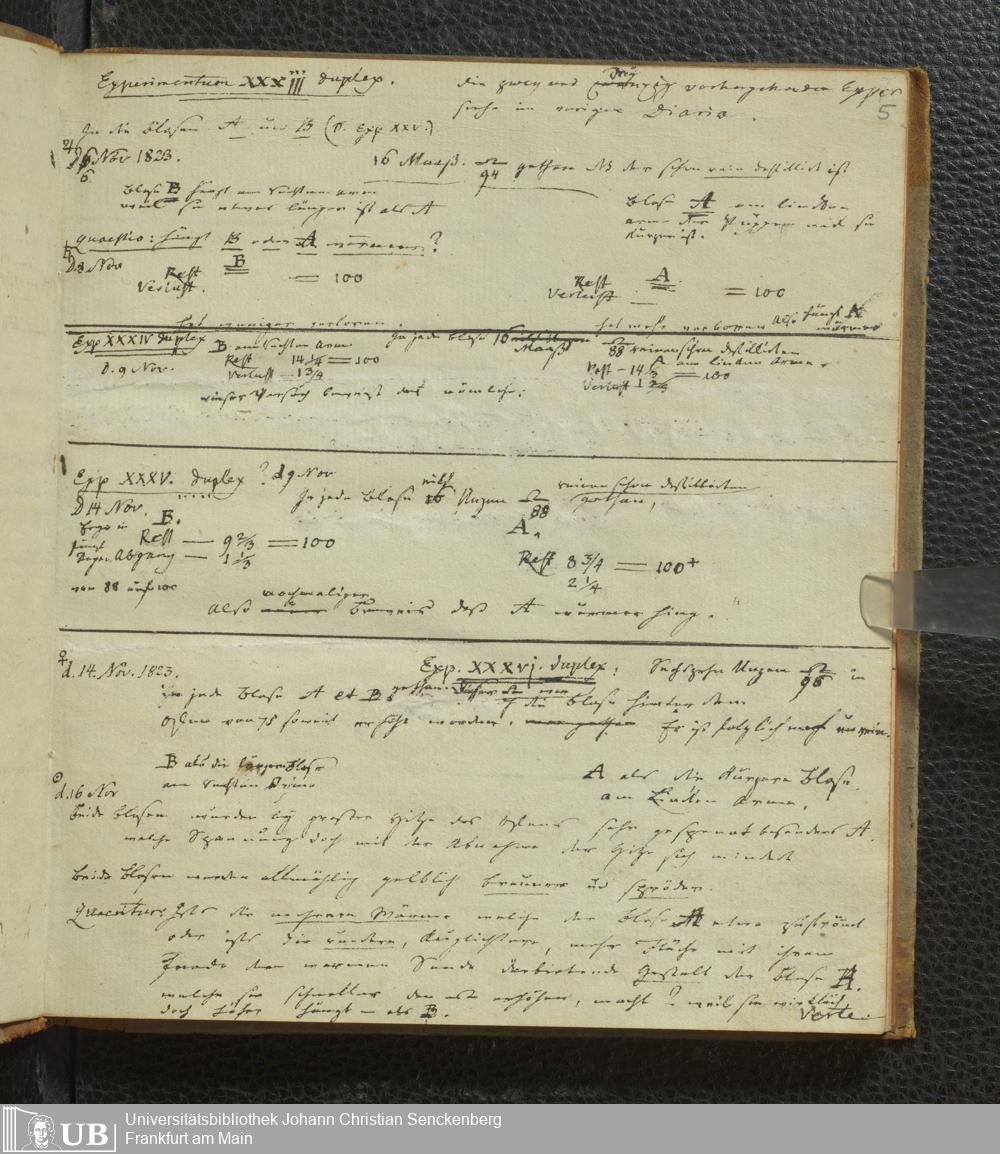 Experimentum XXXiij duplex. die zwey und Drey vorhergehenden Exper
5
siehe im vorigen Diario.
In die Blasen A und B (v. Exp XXV.)
6 Nov 1823. 16 Maaß. 94 gethan der schon rein destillirt ist
Blase B hängt am rechten arm
weil sie etwas länger ist als A
Blase A am linken
arme weil sie
kürzer ist.
Quaestio: hängt B oder A wärmer?
D. 8 Nov
B
Rest = 100
Verlust.
A
Rest
Verlust = 100
hat weniger verloren.
hat mehr verloren also hängt A
wärmer
Exp XXXIV duplex B am rechten Arm In jede Blase 16
Maaß 88 reinen schon destillirten
D. 9 Nov.
Rest 14 1/4 = 100
Verlust - 1 3/4
A am linken Arme
Rest - 14
Verlust 1 = 100
dieser Versuch beweist das nämliche.
Exp XXXV. duplex? d 9 Nov
In jede Blase Unzen 88 reinen schon destillirten
gethan,
D 14 Nov.
B.
Ergo in
fünf
Tagen
Rest — 9 2/3 = 100
Abgang — 1 1/3
von 88 auf 100
A.
Rest 8 3/4 = 100+
2 1/4
also nochmaliger Beweis daß A wärmer hing.
d. 14. Nov. 1823. Exp. XXXVj. duplex: Sechszehn Unzen 98 in
in jede Blase A et B gethan. in die Blase hinter dem
Ofen von 75 soweit erhöht worden. Er ist folglich noch unrein.
B als die längere Blase
am rechten Arme
A als die kürzere Blase
am Linken Arme.
d. 16 Nov
Beide Blasen wurden bey großer Hitze des Ofens sehr gespannt besonders A.
welche Spannung doch mit der Abnahme der Hitze sich mindert
Beide Blasen werden allmählig gelblich brauner und spröder.
Quaeritur: Ists die mehrere Wärme welche der Blase A etwa zuströmt
oder ists die rundere, kuglichtere, mehr Fläche mit ihrem
Ende dem warmen darbietende Gestalt der Blase A.
welche sie schneller den erhöhen, macht? weil sie wirklich
doch höher hängt als B.
Verte.
Universitätsbibliothek Johann Christian Senckenberg
Frankfurt am Main
UB